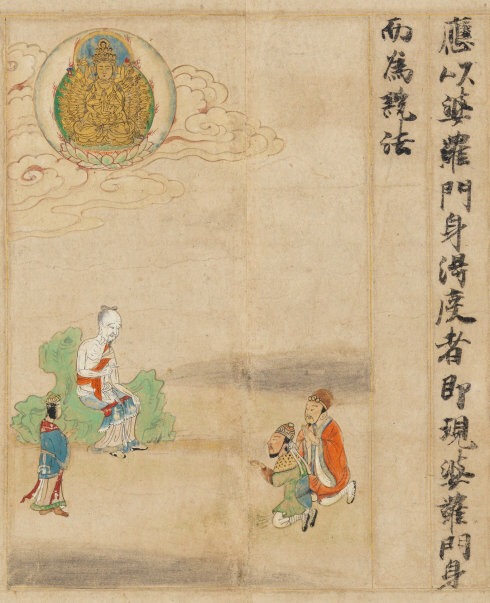 應以婆羅門身得度者即現婆羅門身
而為說法